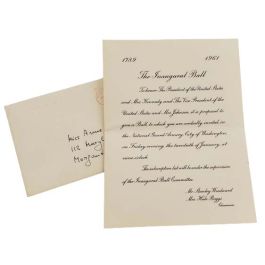 1789 1961
The Inaugural Ball
To honor The President of the United States
and Mrs Kennedy and The Vice President of the
United States and Mrs Johnson it is proposed to
give a Ball to which you are cordially invited in
the National Guard Armory City of Washington
on Friday evening the twentieth of January, at
nine o'clock
The subscription list will be under the supervision
of the Inaugural Ball Committee
Mr. Stanley Woodward
Mrs. Hale Boggs
Miss Anne
112